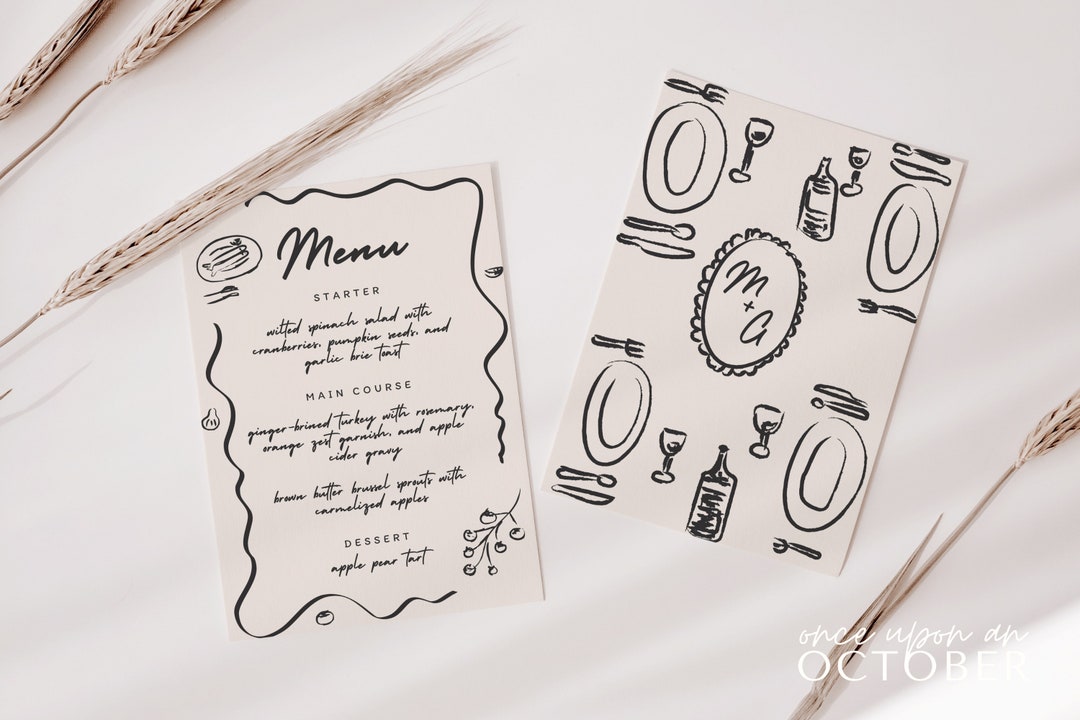 Menu
STARTER
wilted spinach salad with
cranberries, pumpkin seeds, and
garlic brie toast
MAIN COURSE
ginger-brined turkey with rosemary,
orange zest garnish, and apple
cider gravy
brown butter brussel sprouts with
carmelized apples
DESSERT
apple pear tart
M
x
G
once upon an
OCTOBER